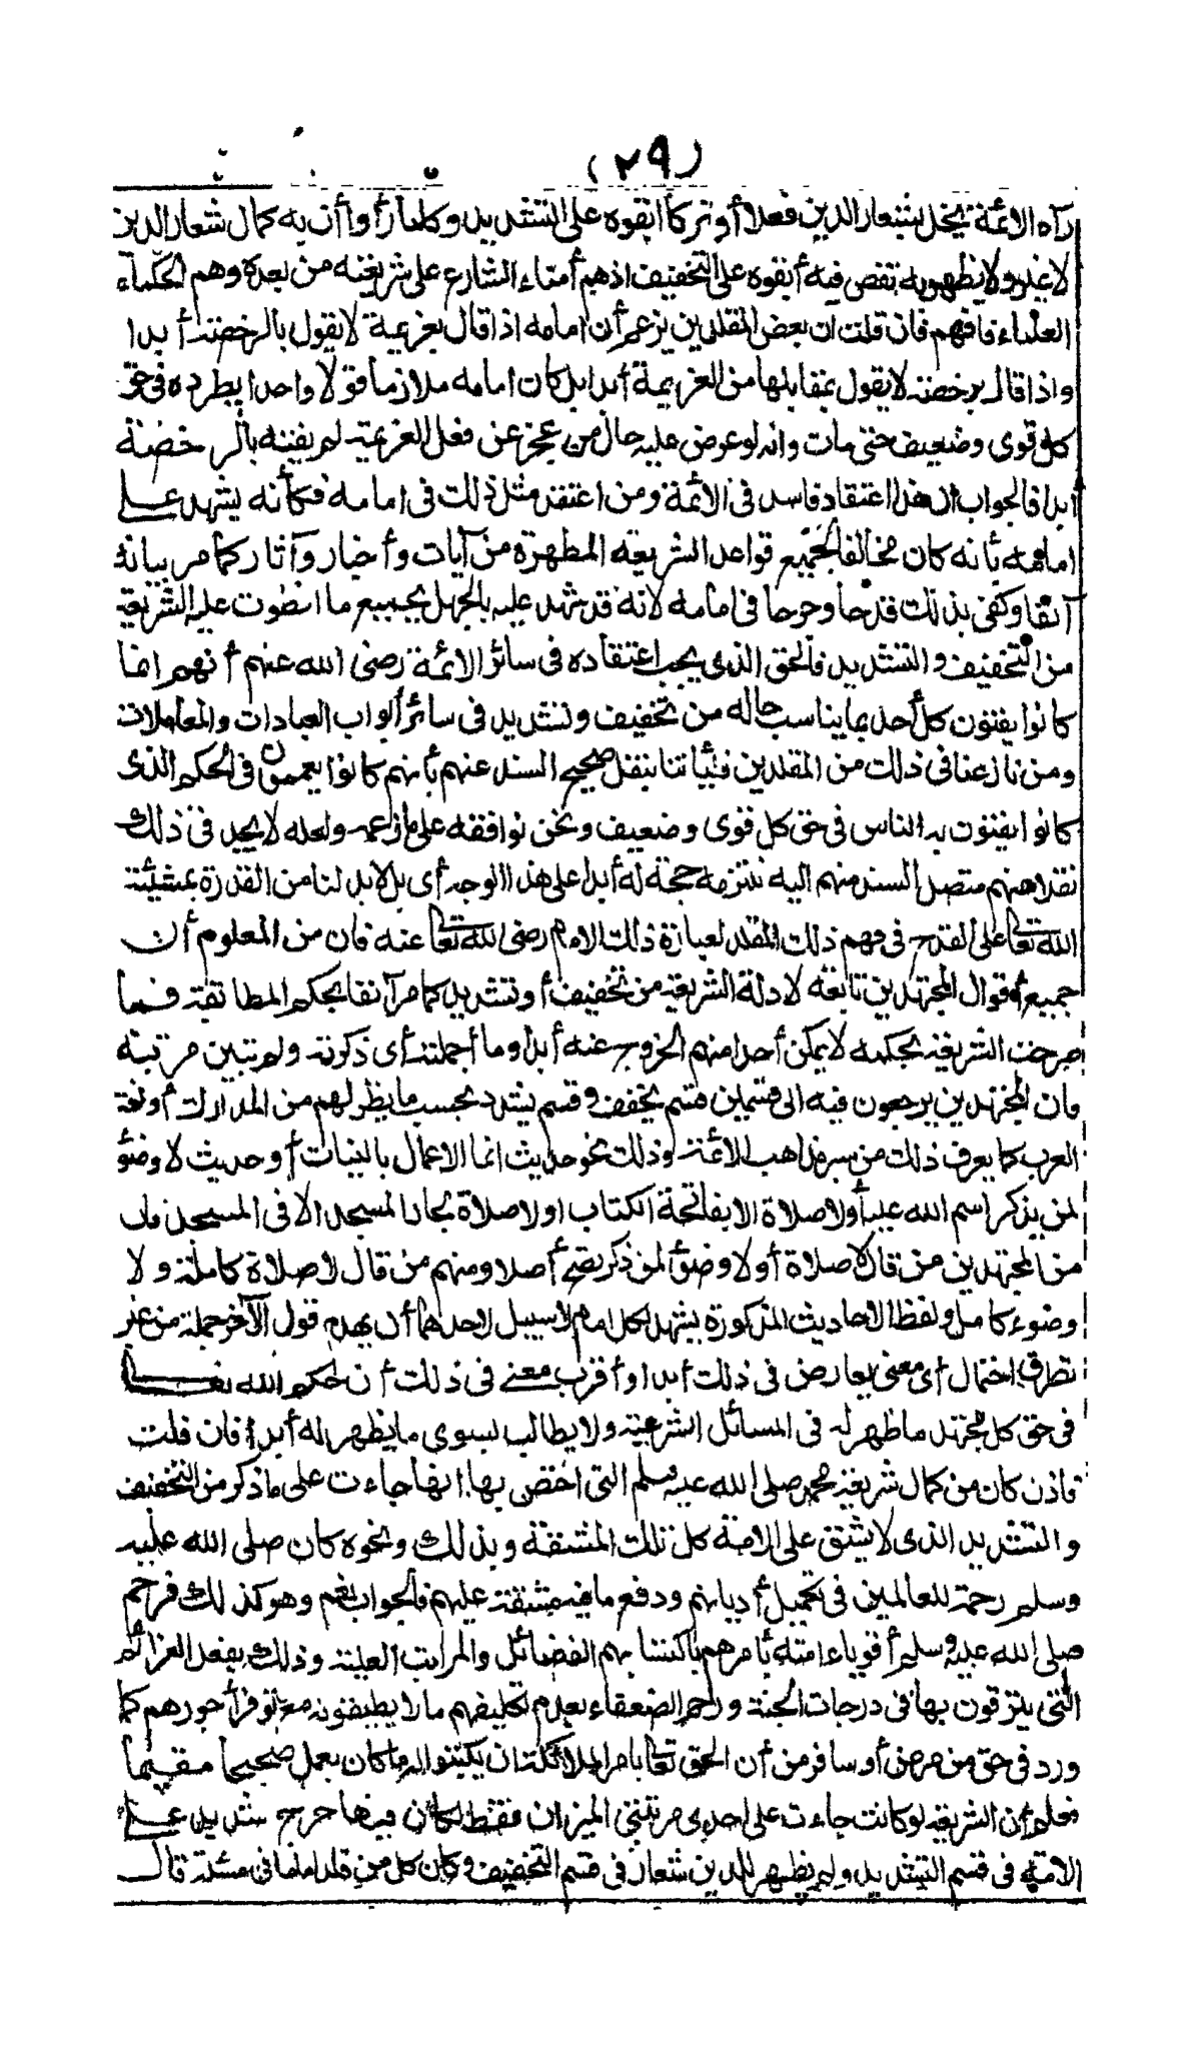 (٢٩)
رآه الائمة يخل بشعار الدين فعلا أو تركا أبقوه على التشديد وكلما رأوا أن به كمال شعار الدين
لا غير ولا يظهر به نقص فيه أبقوه على التخفيف اذهم أمناء الشارع على شريعته من بعده وهم الحكماء
العلماء فافهم فان قلت ان بعض المقلدين يزعم أن امامه اذا قال بعزيمة لا يقول بالرخصة أبدا
واذا قال برخصة لا يقول بمقابلها من العزيمة أبدا بل كان امامه ملازما قولا واحدا يطرده في حق
كل قوى وضعيف حتى مات وانه لو عرض عليه حال من عجز عن فعل العزيمة لم يفته بالرخصة
ابدا فالجواب ان هذا اعتقاد فاسد فى الائمة ومن اعتقد مثل ذلك فى امامه فكأنه يشهد على
امامه بأنه كان مخالفا لجميع قواعد الشريعة المطهرة من آيات وأخبار وآثار كما مر بيانه
آنفا وكفى بذلك قدحا وجرحا فى امامه لانه قد شهد عليه بالجهل بجميع ما انطوت عليه الشريعة
من التخفيف والتشديد فالحق الذى يجب اعتقاده فى سائر الائمة رضى الله عنهم أنهم انما
كانوا يفتون كل أحد بما يناسب حاله من تخفيف وتشديد فى سائر أبواب العبادات والمعاملات
ومن نازعنا فى ذلك من المقلدين فليأتنا بنقل صحيح السند عنهم بأنهم كانوا يعممون فى الحكم الذى
كانوا يفتون به الناس فى حق كل قوى وضعيف ونحن نوافقه على ما زعمه ولعله لا يجد فى ذلك
نقلا عنهم متصل السند منهم اليه تنتزمه حجة له أبدا على هذا الوجه أى بل لابد لنا من القدرة بمشيئة
الله تعالى على القدح فى فهم ذلك المقلد لعبارة ذلك الامام رضى الله تعالى عنه فان من المعلوم أن
جميع أقوال المجتهدين تابعة لادلة الشريعة من تخفيف أو تشديد كما مر آنفا بحكم المطابقة فما
صرحت الشريعة بحكمه لا يمكن أحدا منهم الخروج عنه أبدا وما أجملته أى ذكرته ولم تبين مرتبته
فان المجتهدين يرجعون فيه الى قسمين قسم يخفف وقسم يشدد بحسب ما يظهر لهم من المدارك أو لغة
العرب كما يعرف ذلك من سبر مذاهب الائمة وذلك نحو حديث انما الاعمال بالنيات أو حديث لا وضوء
لمن يذكر اسم الله عليه أو لا صلاة الا بفاتحة الكتاب او لا صلاة لجار المسجد الا فى المسجد فان
من المجتهدين من قال لا صلاة أو لا وضوء لمن ذكر يصح أصلا ومنهم من قال لا صلاة كاملة ولا
وضوء كامل ولفظ الاحاديث المذكورة يشهد لكل امام لا سبيل لاحدهما أن يهدم قول الآخر جملة من غير
تطرق احتمال أى معنى يعارض فى ذلك أبدا وأقرب معنى فى ذلك أن حكم الله تعالى
فى حق كل مجتهد ما ظهر له فى المسائل الشرعية ولا يطالب بسوى ما يظهر له أبدا فان قلت
فاذن كان من كمال شريعة محمد صلى الله عليه وسلم التى اختص بها انها جاءت على ما ذكر من التخفيف
والتشديد الذى لا يشق على الامة كل تلك المشقة وبذلك ونحوه كان صلى الله عليه
وسلم رحمة للعالمين فى تحميل أديانهم ودفع ما فيه مشقة عليهم فالجواب نعم وهو كذلك فرحم
صلى الله عليه وسلم أقوياء امته بأمرهم باكتسابهم الفضائل والمراتب العلية وذلك بفعل العزائم
التى يترقون بها فى درجات الجنة ورحم الضعفاء بعدم تكليفهم ما لا يطيقونه مع توفر أجورهم كما
ورد فى حق من مرض أو سافر من أن الحق تعالى يأمر الملائكة ان يكتبوا له ما كان يعمل صحيحا مقيما
فعلم أن الشريعة لو كانت جاءت على احدى مرتبتى الميزان فقط لكان فيها حرج شديد على
الامة فى قسم التشديد ولم يظهر للدين شعار فى قسم التخفيف وكان كل من قلد اماما فى مسئلة قال